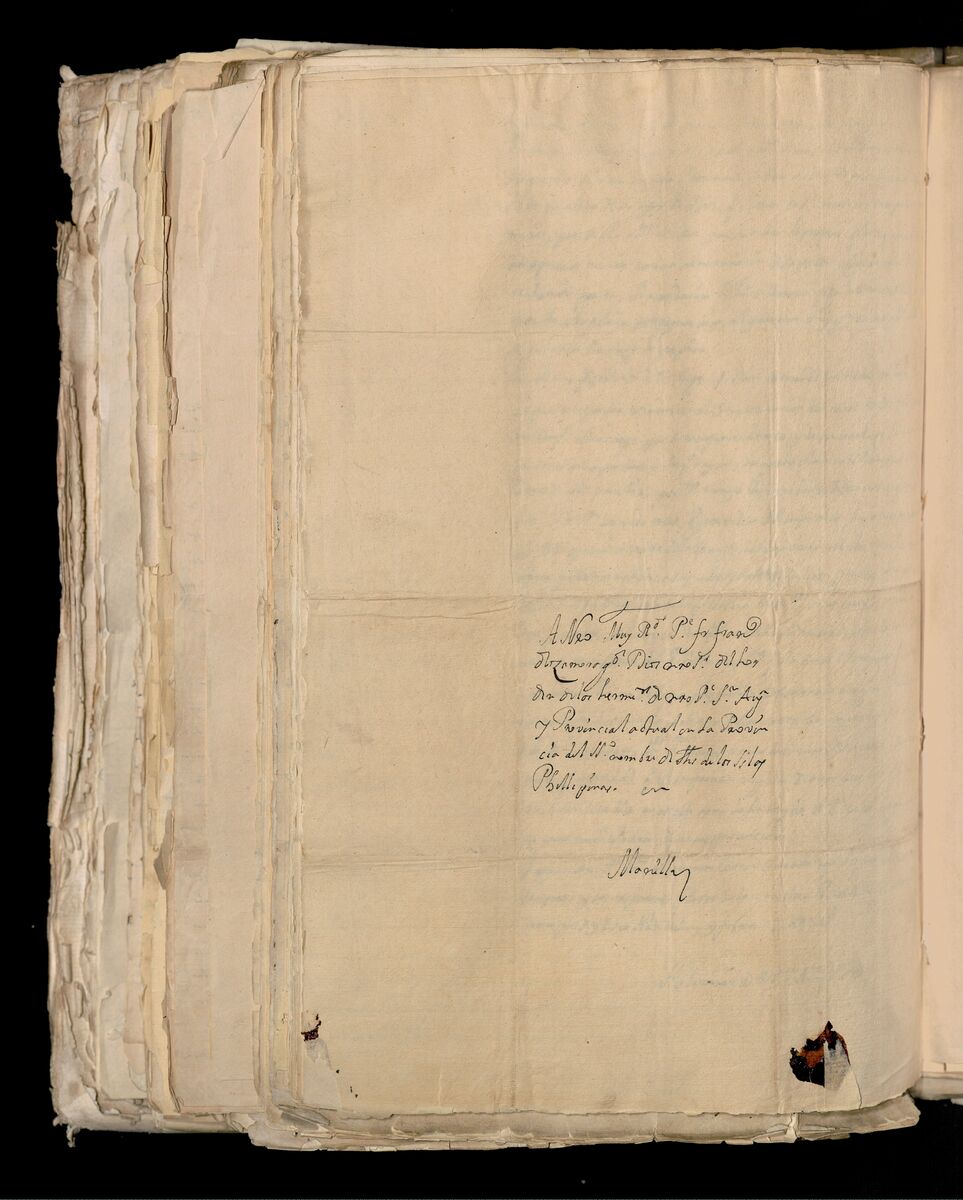 A Nro Muy Rdo. Pe. fr fran
de Zamora gde. Dios nro Sr. del hor
den de los hermos. de nro Pe. Sn. Aug
y Provincial actual en la Provin
cia del SSo. nombre de Jhs de los Islas
Phillipinas. en
Manilla